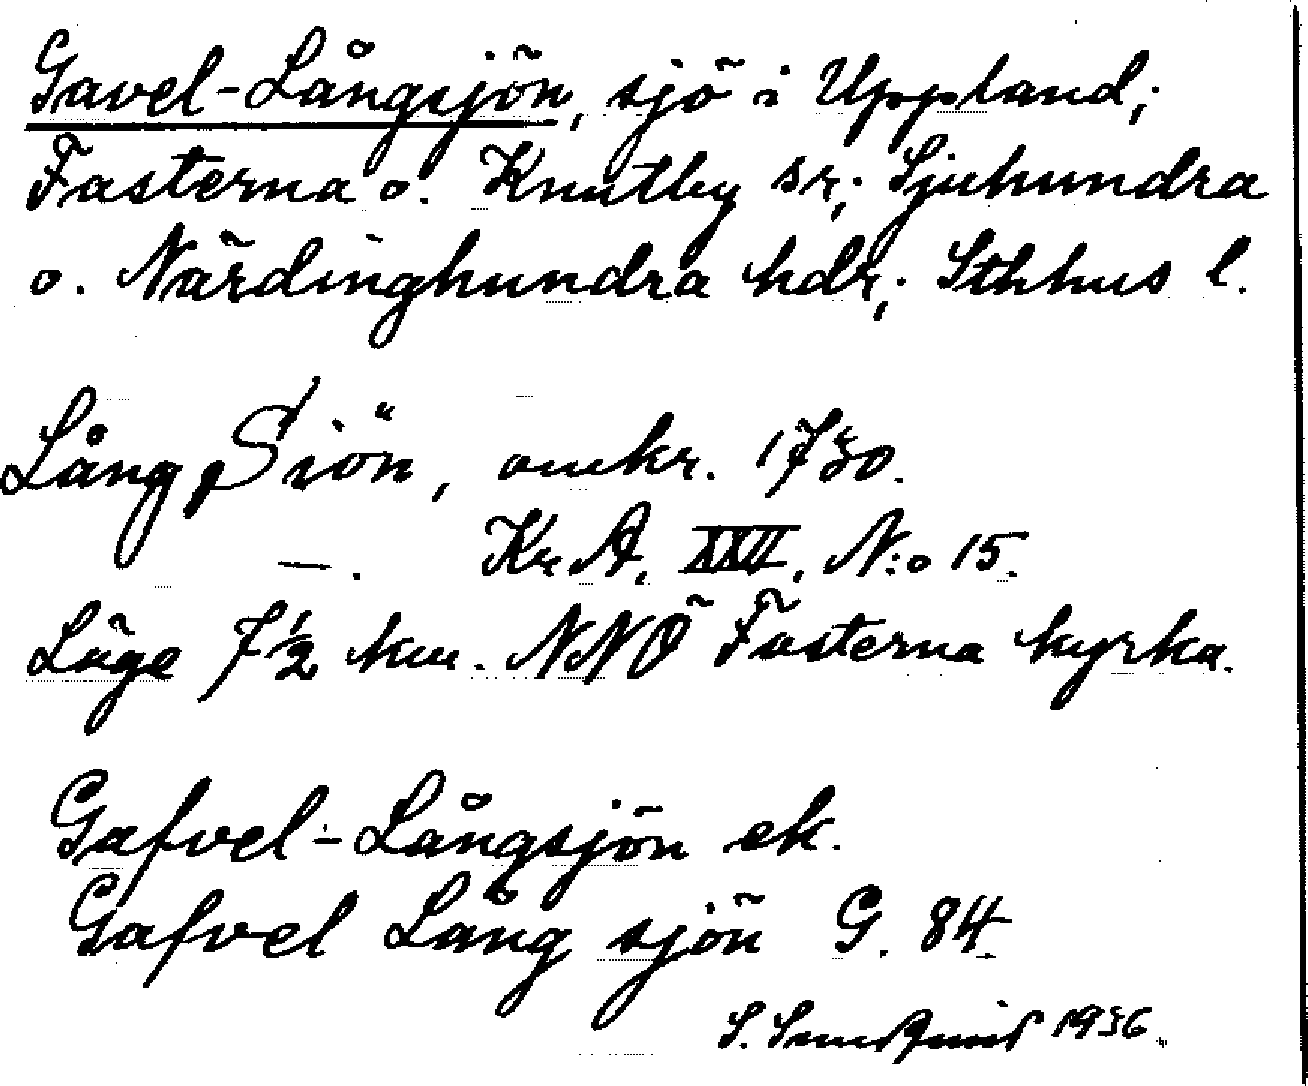 Gavel-Långsjön, sjö i Uppland;
Fasterna o. Knutby snr; Sjuhundra
o. Närdinghundra hdr; Sthlms l.
Lång Siön, omkr. 1730.
—. KrA, XXVI, N:o 15.
Läge 7½ km. NNÖ Fasterna kyrka.
Gafvel-Långsjön ek.
Gafvel Lång sjön G. 84
S. Sundquist 1936.